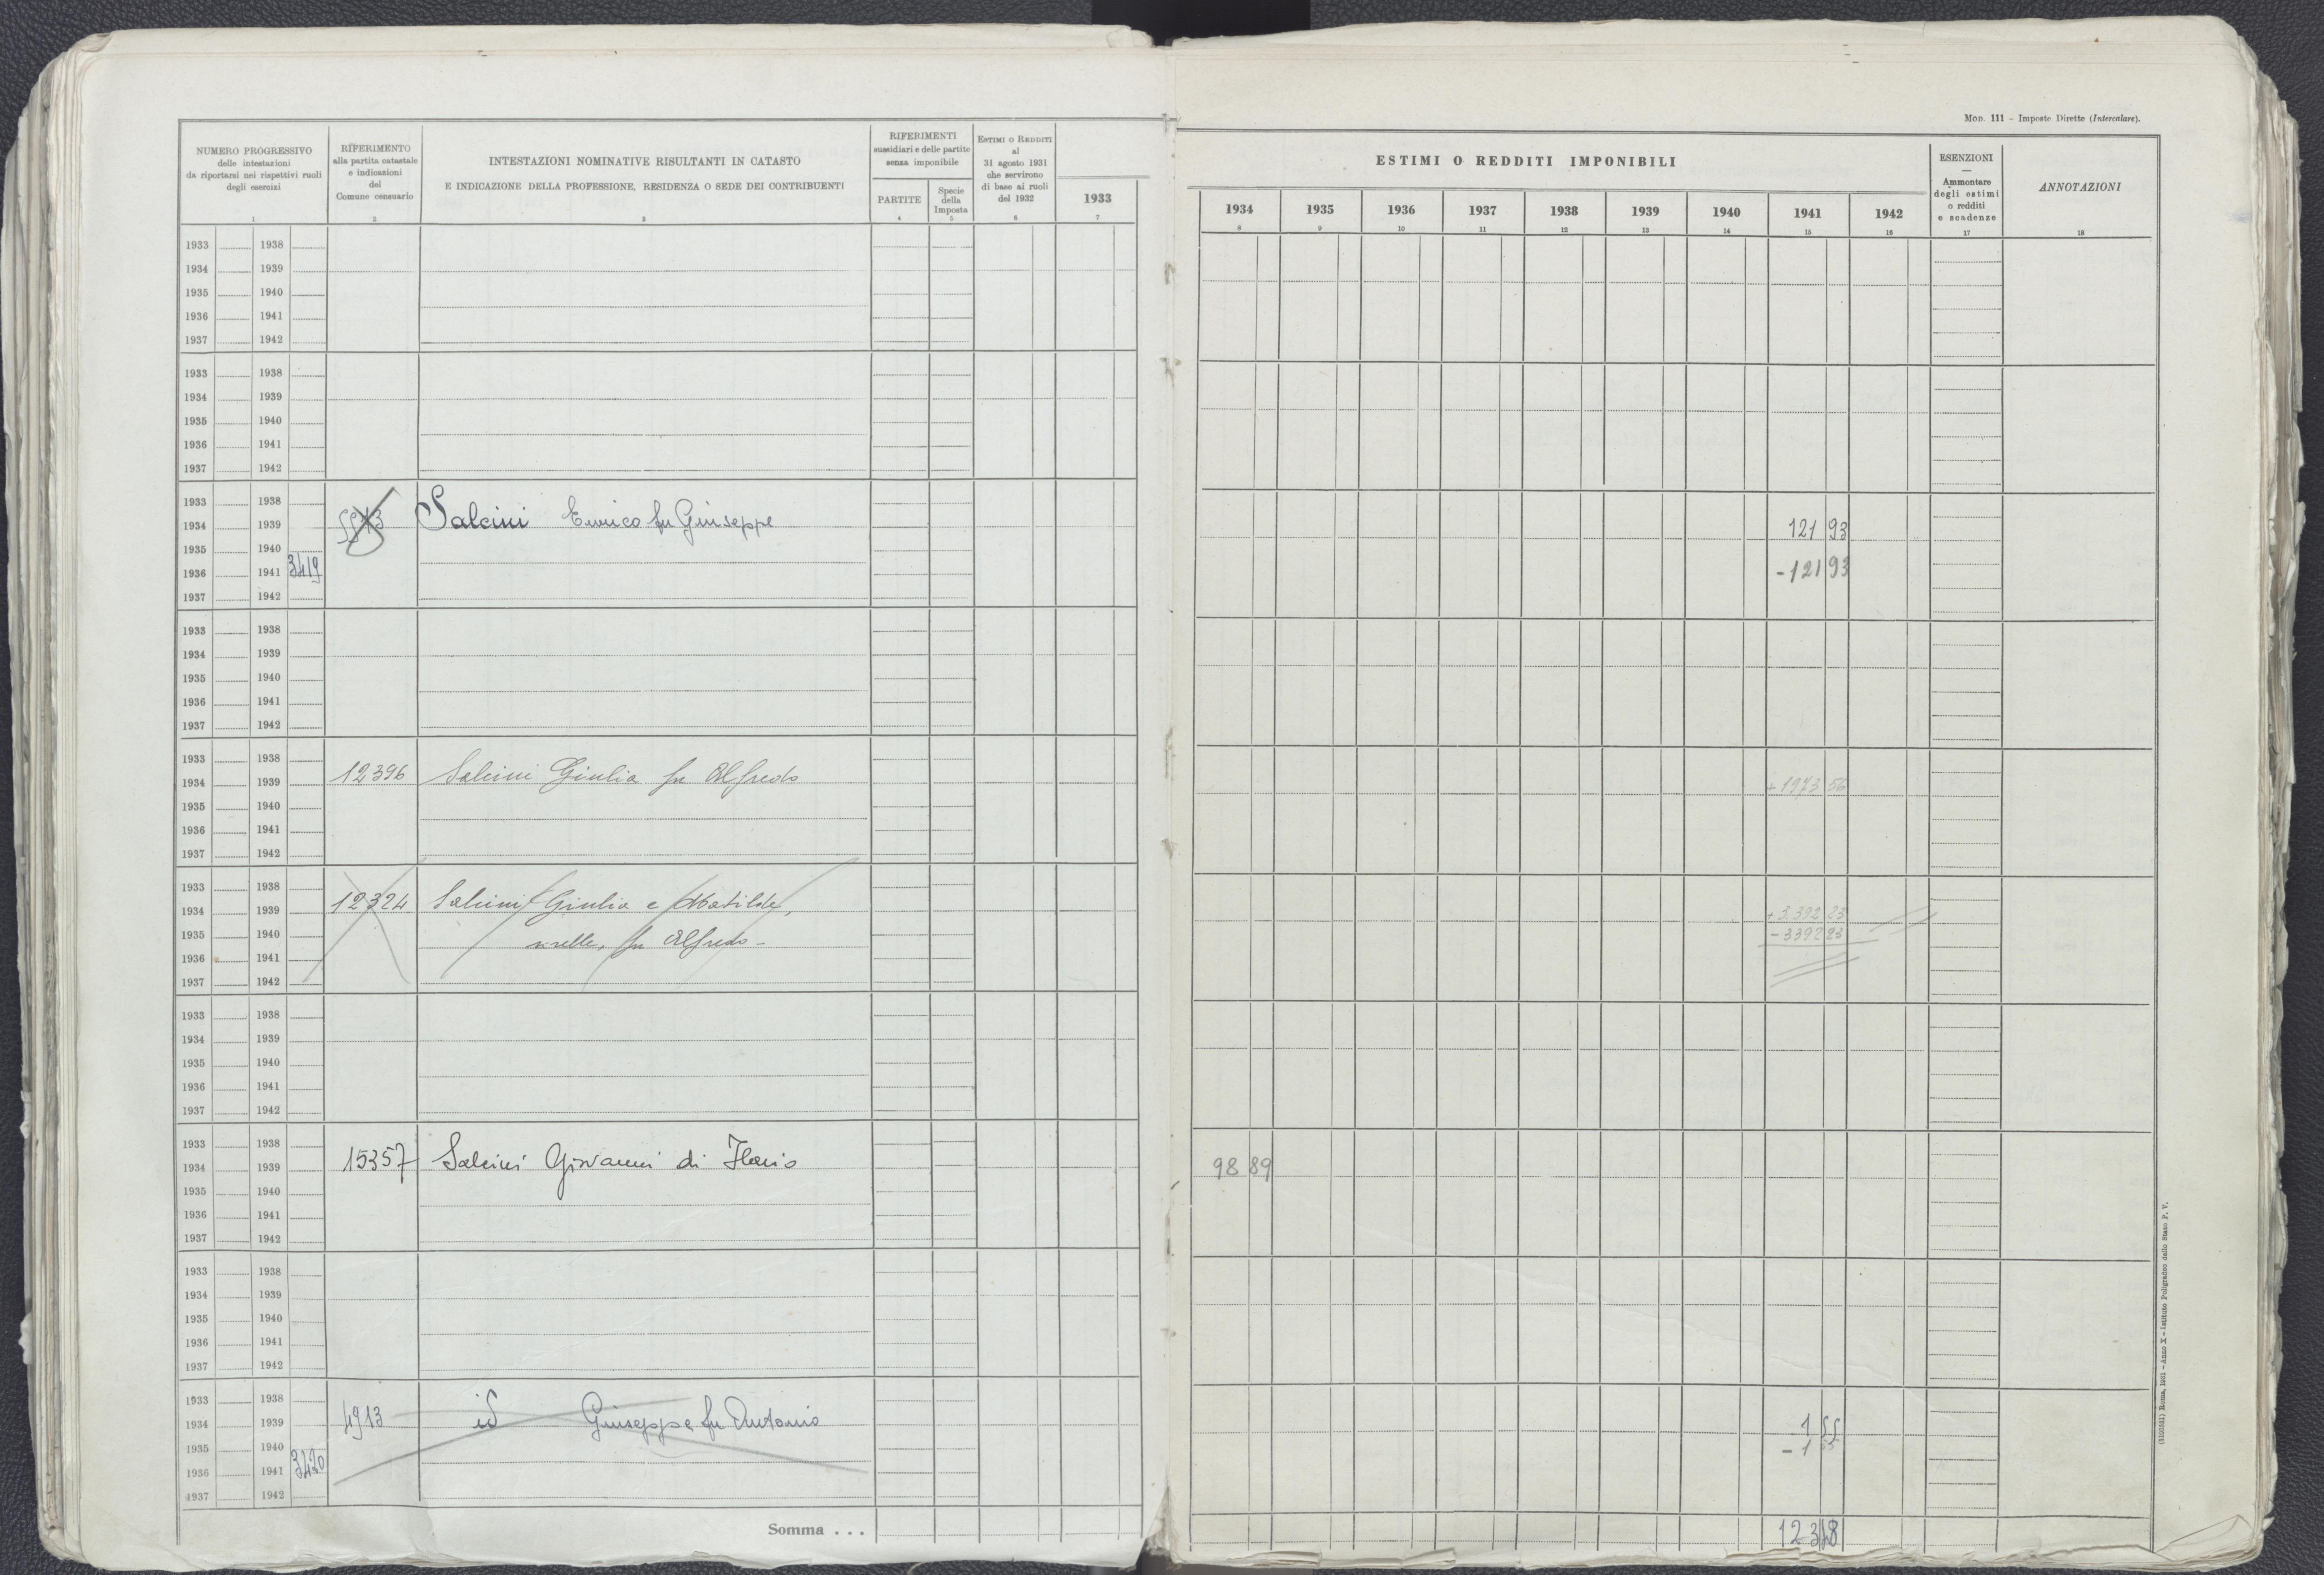 Mod. 111 - Imposte Dirette (Intercalare).
NUMERO PROGRESSIVO
delle intestazioni
da riportarsi nei rispettivi ruoli
degli esercizi
1
RIFERIMENTO
alla partita catastale
e indicazioni
del
Comune censuario
2
INTESTAZIONI NOMINATIVE RISULTANTI IN CATASTO
E INDICAZIONE DELLA PROFESSIONE, RESIDENZA O SEDE DEI CONTRIBUENTI
3
RIFERIMENTI
sussidiari e delle partite
senza imponibile
PARTITE
4
Specie
della
Imposta
5
ESTIMI O REDDITI
al
31 agosto 1931
che servirono
di base ai ruoli
del 1932
6
1933
7
ESTIMI O REDDITI IMPONIBILI
1934 1935 1936 1937 1938 1939 1940 1941 1942
8 9 10 11 12 13 14 15 16
ESENZIONI
—
Ammontare
degli estimi
o redditi
e scadenze
17
ANNOTAZIONI
18
1933 1938
1934 1939
1935 1940
1936 1941
1937 1942
1933 1938
1934 1939
1935 1940
1936 1941
1937 1942
1933 1938
1934 1939 Salcini Enrico fu Giuseppe 121 93
1935 1940
1936 1941 3419 -121 93
1937 1942
1933 1938
1934 1939
1935 1940
1936 1941
1937 1942
1933 1938
1934 1939 12396 Salcini Giulia fu Alfredo +1973 56
1935 1940
1936 1941
1937 1942
1933 1938
1934 1939 12324 Salcini Giulia e Matilde, +3392 23
1935 1940 fu Alfredo - -3392 23
1936 1941
1937 1942
1933 1938
1934 1939
1935 1940
1936 1941
1937 1942
1933 1938
1934 1939 15357 Salcini Giovanni di Ilario 98 89
1935 1940
1936 1941
1937 1942
1933 1938
1934 1939
1935 1940
1936 1941
1937 1942
1933 1938
1934 1939 4913 id Giuseppe fu Antonio 1 55
1935 1940 -1 55
1936 1941 3420
1937 1942
Somma . . . 123 48
Roma, 1931 - Anno X - Istituto Poligrafico dello Stato P. V.